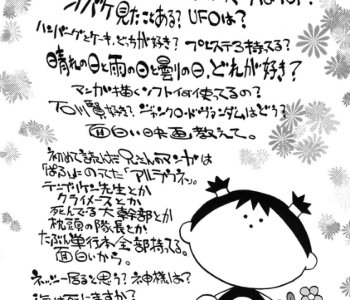 オバケ見たことある？UFOは？
ハンバーグとケーキ、どっちが好き？プレステ3持ってる？
晴れの日と雨の日と曇りの日、どれが好き？
マンガ描くソフト何使ってるの？
石川賢好き？ジャンクロードヴァンダムはどう？
面白い映画教えて。
初めて読んだ兄さんマンガは
「ぱる」にのってた「アルラウネ」。
テンプルナイツ先生とか
クライメーズとか
死んでる大幹部とか
枕頭の隊長とか
たぶん単行本全部持てる。
面白いから。
ネッシー居ると思う？神様は？